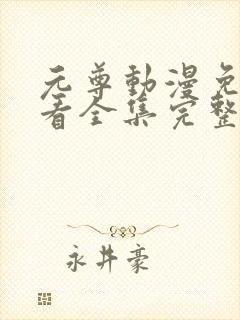 元尊動漫免
看全集完整
永井豪